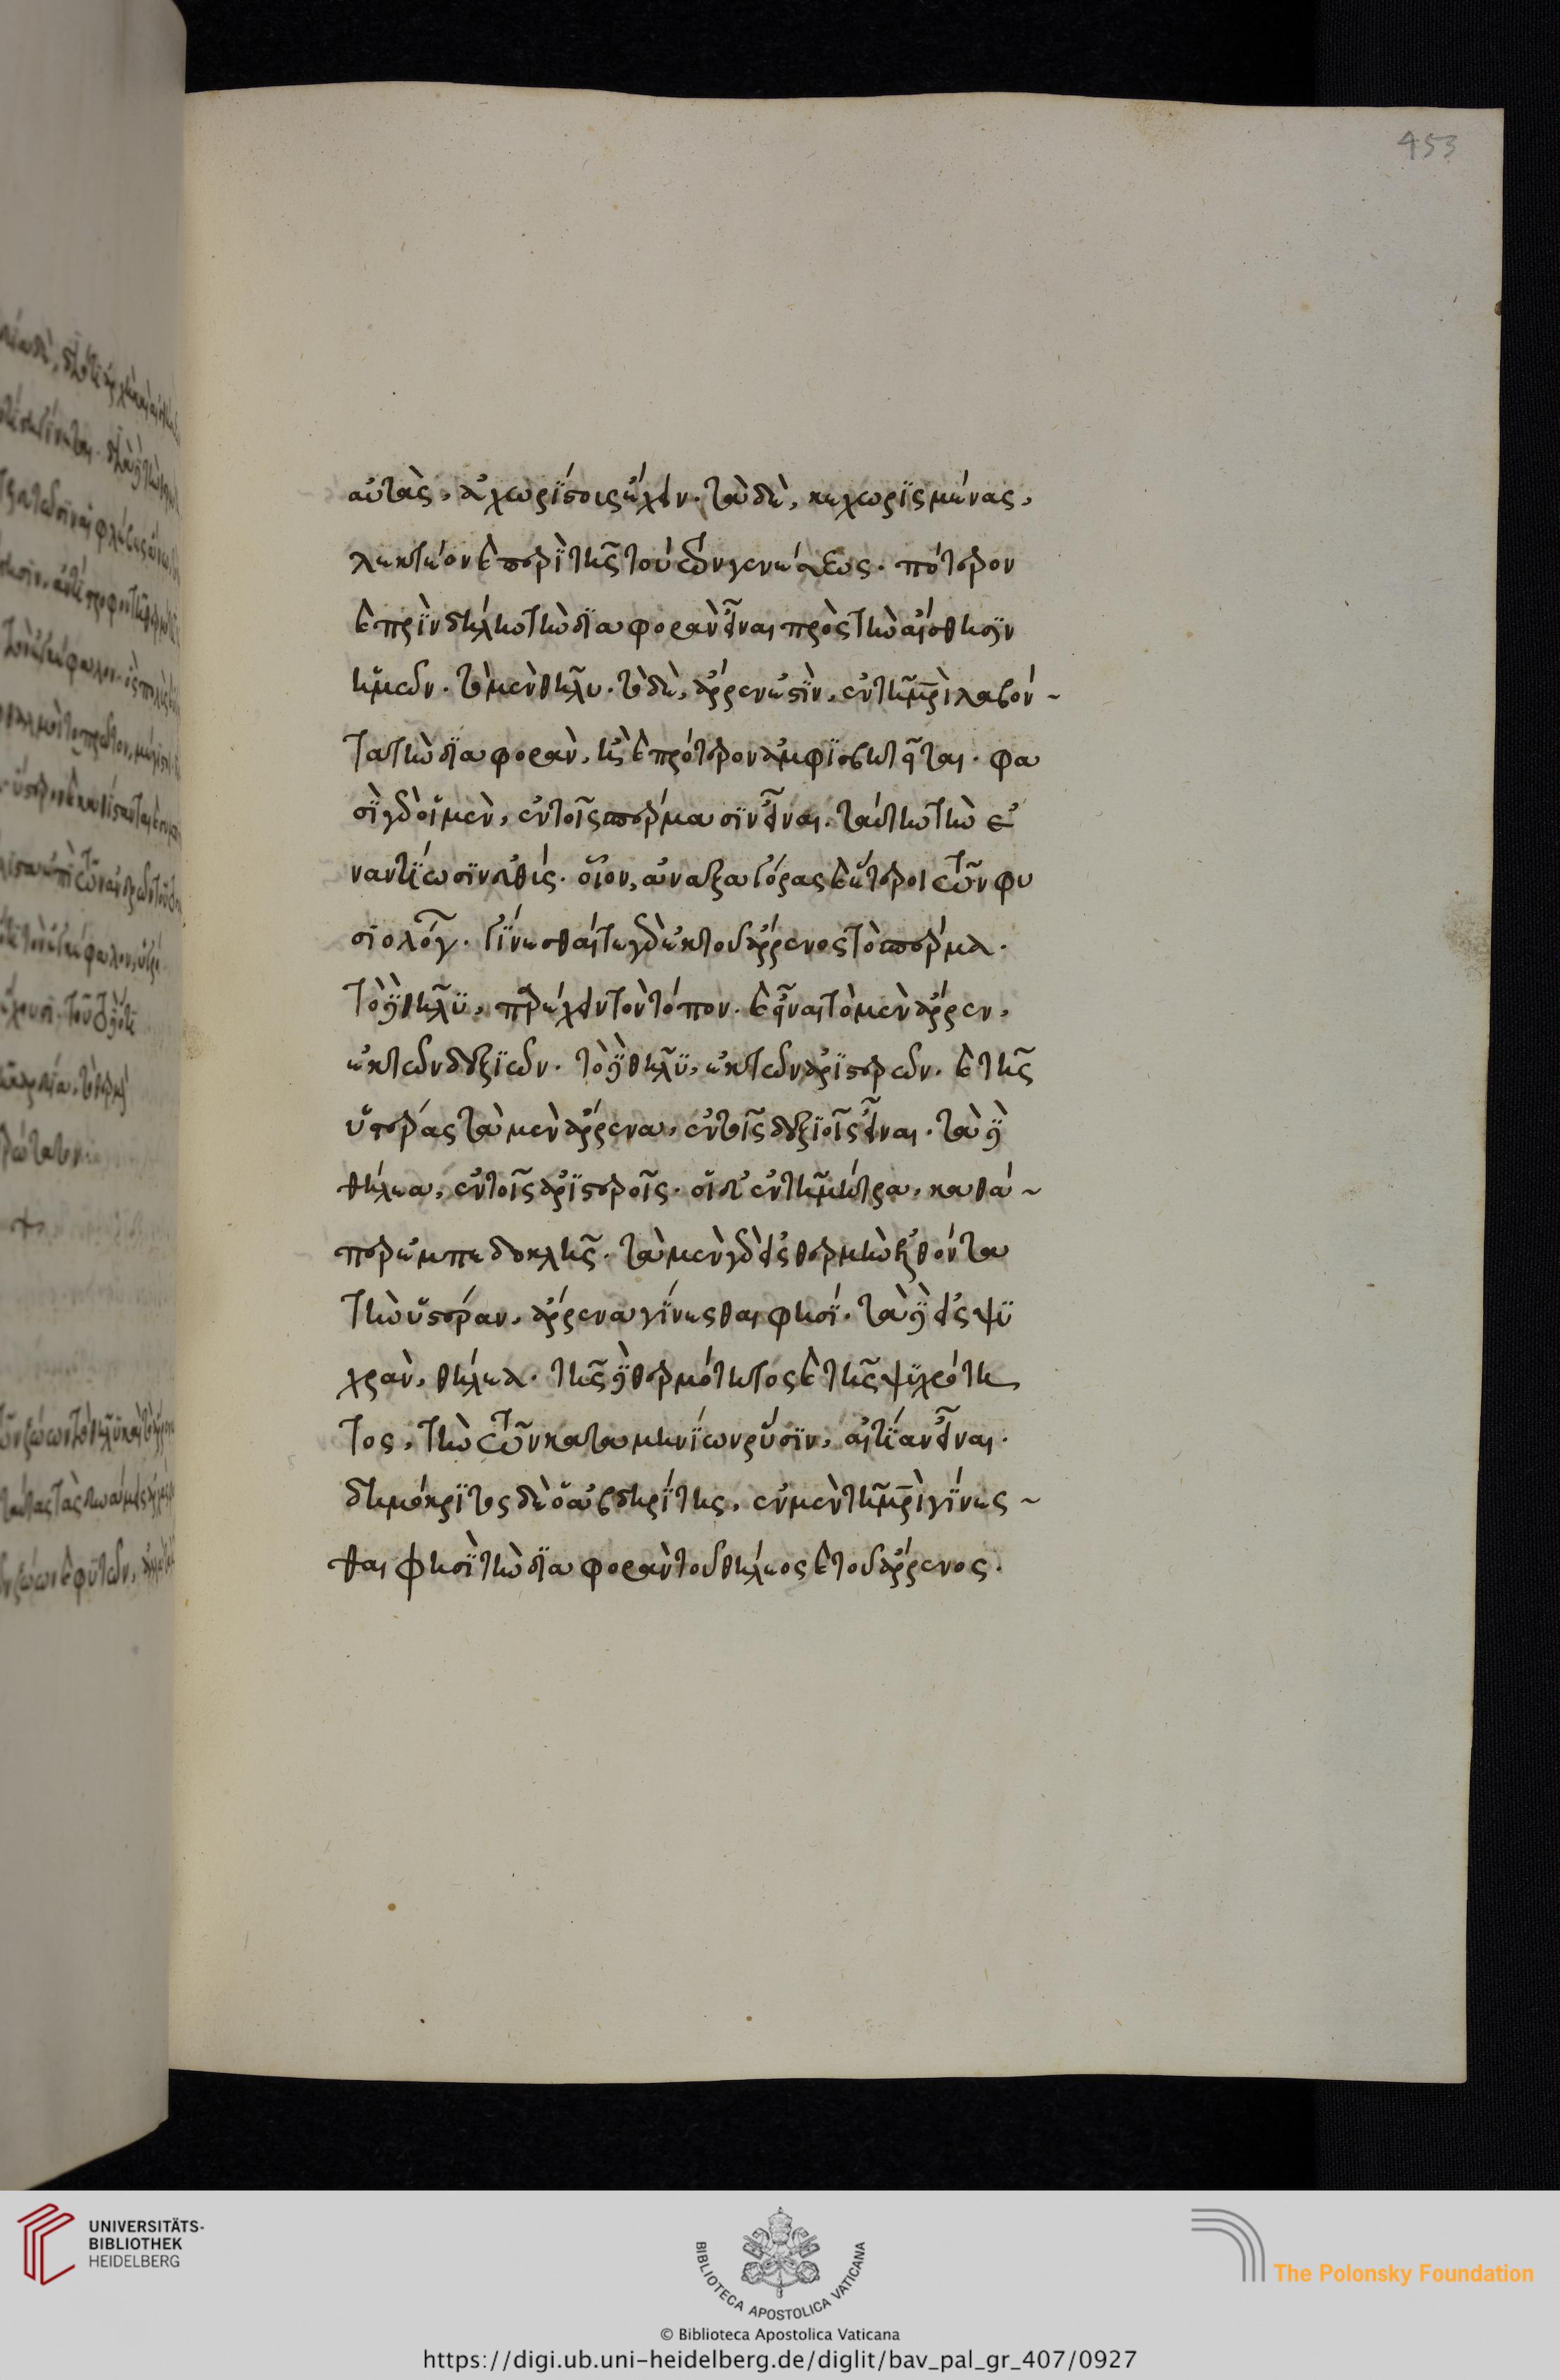 453
αὐτὰς, ἀχωρίστοις ἔχειν. τὰ δὲ, κεχωρισμένας,
λεκτέον καὶ περὶ τῆς τούτων γενέσεως. πότερον
καὶ πρὶν δήλην τὴν διαφορὰν εἶναι πρὸς τὴν αἴσθησιν
ἡμῶν. τὸ μὲν θῆλυ. τὸ δὲ, ἄρρεν ἐστὶν, ἐν τῆ μητρὶ λαβόν-
τα τὴν διαφορὰν, ἢ καὶ πρότερον ἀμφισβητεῖται. φα
σὶ γὰρ οἱ μὲν, ἐν τοῖς σπέρμασιν εἶναι. ταύτην τὴν ἐ
ναντίωσιν εὐθύς. οἷον, ἀναξαγόρας καὶ ἕτεροι τῶν φυ
σιολόγων. γίνεσθαί τε γὰρ ἐκ τοῦ ἄρρενος τὸ σπέρμα.
τὸ δὲ θῆλυ, παρέχειν τὸν τόπον. καὶ εἶναι τὸ μὲν ἄρρεν,
ἐκ τῶν δεξιῶν. τὸ δὲ θῆλυ, ἐκ τῶν ἀριστερῶν. καὶ τῆς
ὑστέρας τὰ μὲν ἄρρενα, ἐν τοῖς δεξιοῖς εἶναι. τὰ δὲ
θήλεα, ἐν τοῖς ἀριστεροῖς. οἱ δ' ἐν τῆ μήτρα, καθά-
περ ἐμπεδοκλῆς. τὰ μὲν γὰρ εἰς θερμὴν ἐλθόντα
τὴν ὑστέραν, ἄρρενα γίνεσθαι φησί. τὰ δὲ εἰς ψυ
χρὰν, θήλεα. τῆς δὲ θερμότητος καὶ τῆς ψυχρότη
τος, τὴν τῶν καταμηνίων ῥύσιν, αἰτίαν εἶναι.
δημόκριτος δὲ ὁ ἀβδηρίτης, ἐν μὲν τῆ μητρὶ γίνεσ-
θαι φησὶ τὴν διαφορὰν τοῦ θήλεος καὶ τοῦ ἄρρενος.
UNIVERSITÄTS-
BIBLIOTHEK
HEIDELBERG
BIBLIOTECA APOSTOLICA VATICANA
The Polonsky Foundation
© Biblioteca Apostolica Vaticana
https://digi.ub.uni-heidelberg.de/diglit/bav_pal_gr_407/0927